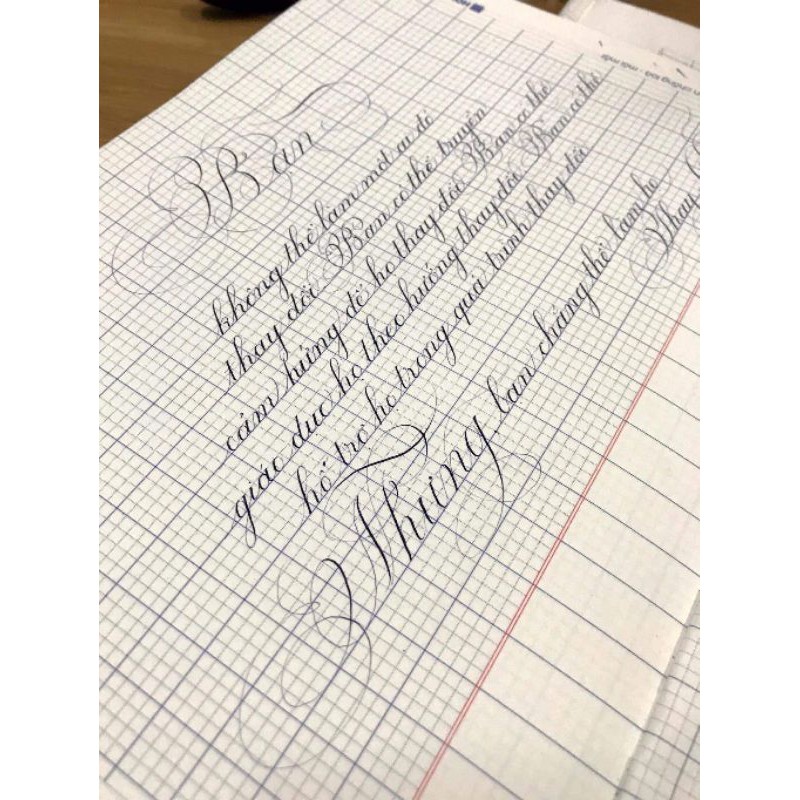 Bạn
không thể làm một ai đó
thay đổi Bạn có thể truyền
cảm hứng để họ thay đổi Bạn có thể
giáo dục họ theo hướng thay đổi Bạn có thể
hỗ trợ họ trong quá trình thay đổi
Nhưng bạn chẳng thể làm họ
Thay